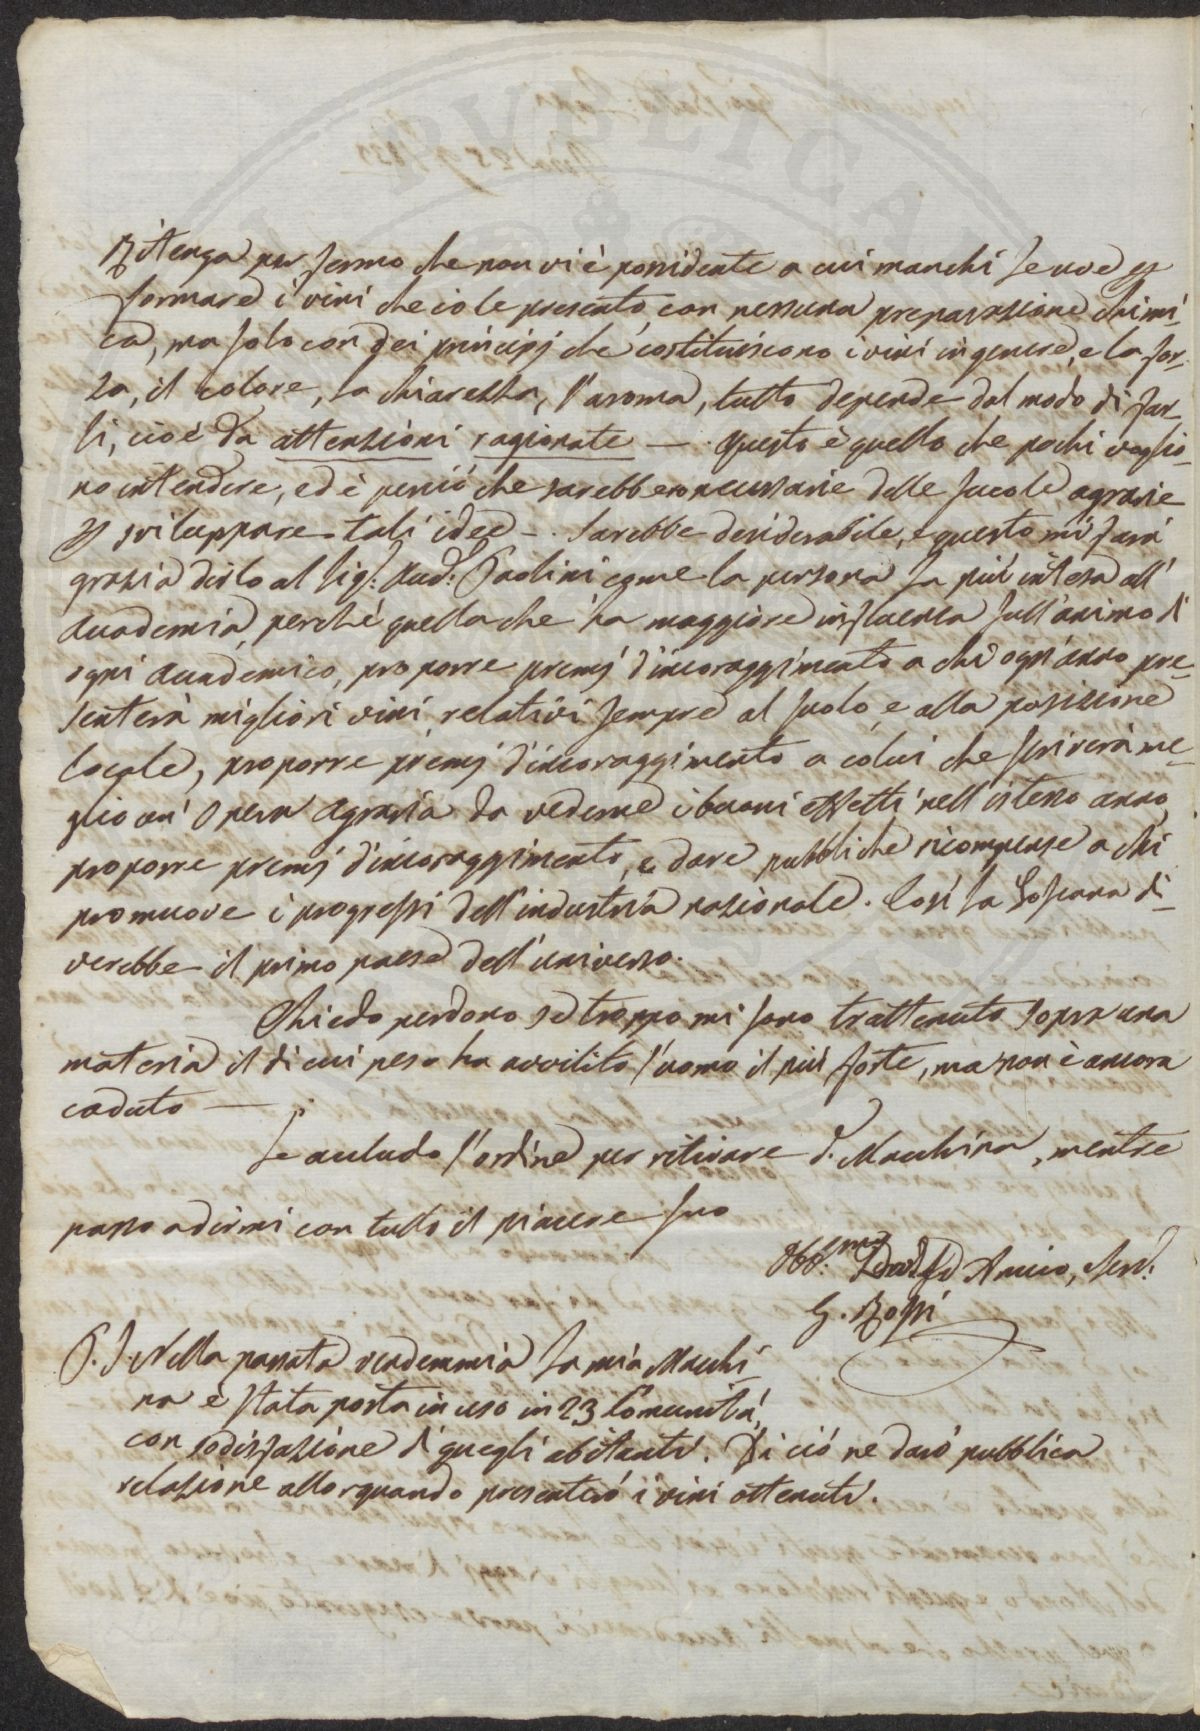 Ritenga per fermo che non vi è possidente a cui manchi le uve p
formare i vini che io le presento, con nessuna preparazione chimi-
ca, ma solo con dei principj che costituiscono i vini in genere, e la for-
za, il colore, la chiarezza, l'aroma, tutto depende dal modo di far-
li, cioè da attenzioni ragionate — . Questo è quello che pochi voglio-
no intendere, ed è perciò che sarebbero necessarie delle scuole agrarie
p sviluppare tali idee - . Sarebbe desiderabile, e questo mi farà
grazia dirlo al Sig.: Aud: Paolini come la persona la più intesa all'
Accademia, perchè quella che ha maggiore influenza sull'animo di
ogni Accademico, proporre premj d'incoraggimento a chi ogni anno pre-
senterà migliori vini relativi sempre al suolo, e alla posizione
locale, proporre premj d'incoraggimento a colui che scriverà me-
glio un' Opera Agraria da vederne i buoni effetti nell'istesso anno,
proporre premj d'incoraggimento, e dare pubbliche ricompense a chi
promuove i progressi dell'industria nazionale. Così la Toscana di-
verebbe il primo paese dell'universo.
Chiedo perdono se troppo mi sono trattenuto sopra una
materia il di cui peso ha avvilito l'uomo il più forte, ma non è ancora
caduto — .
Le accludo l'ordine per ritirare d. Macchina, mentre
passo a dirmi con tutto il piacere suo
Obb.mo Amico, Serv.
G. Rossi
P. S. Nella passata vendemmia la mia Macchi-
na è stata posta in uso in 23 Comunità,
con sodisfazione di quegli abitanti. Di ciò ne darò pubblica
relazione allorquando presenterò i vini ottenuti.
PUBLICA